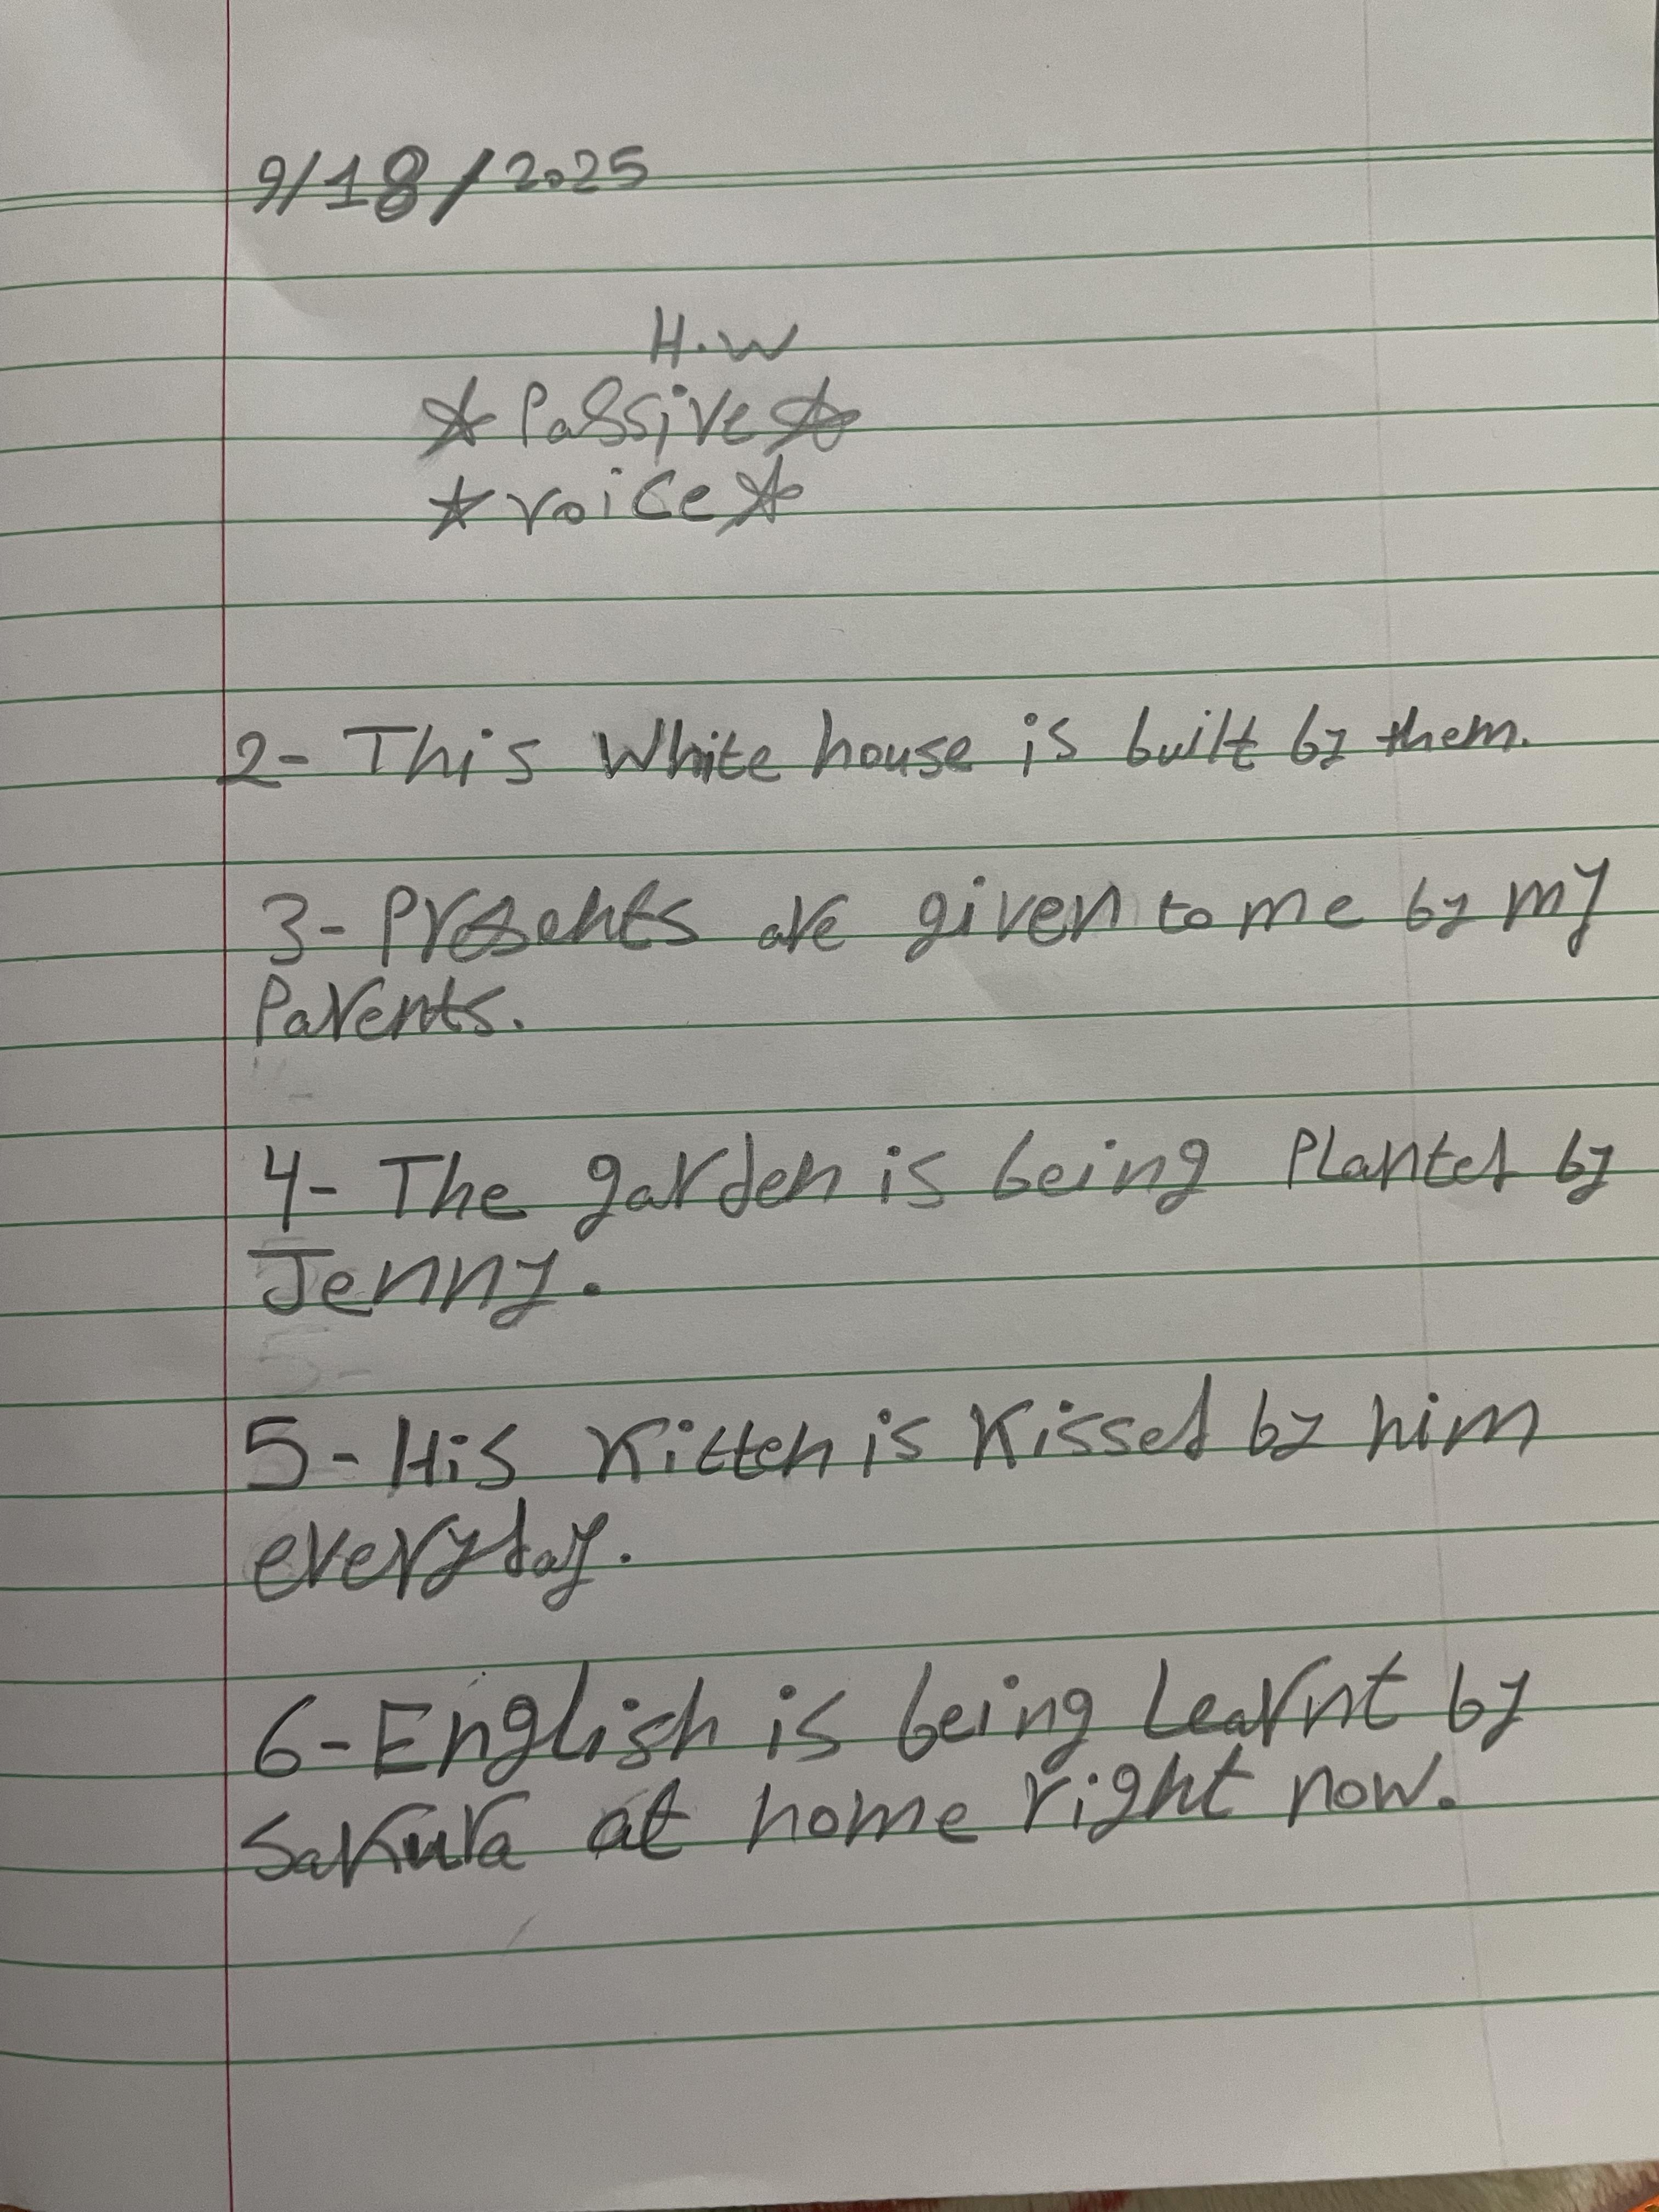 9/18/2025
H.W
☆ Passive ☆
☆ voice ☆
2- This White house is built by them.
3- Presents are given to me by my
Parents.
4- The garden is being Planted by
Jenny.
5- His Kitten is Kissed by him
everyday.
6- English is being Learnt by
Sakura at home right now.